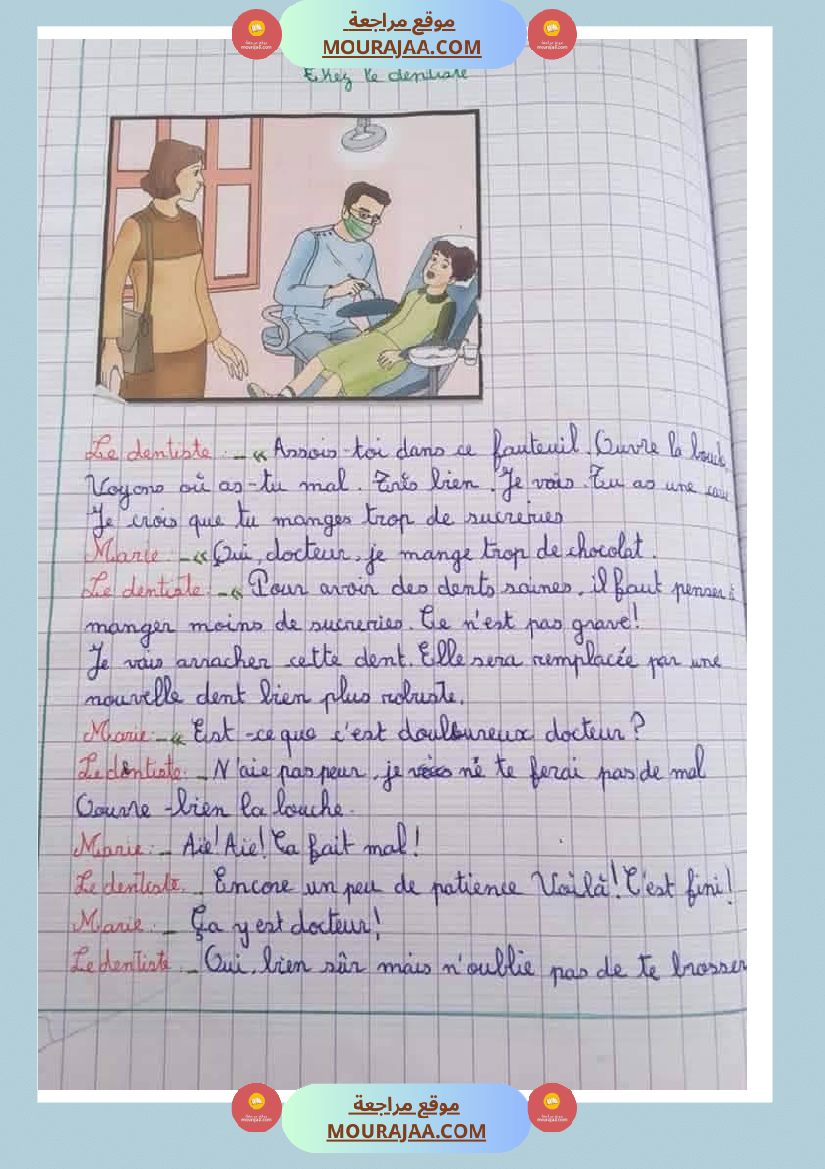 موقع مراجعة
MOURAJAA.COM
Chez le dentiste
Le dentiste : - « Assois-toi dans ce fauteuil. Ouvre la bouche
Voyons où as-tu mal. Très bien. Je vois. Tu as une
Je crois que tu manges trop de sucreries
Marie : - « Oui, docteur, je mange trop de chocolat.
Le dentiste : - « Pour avoir des dents saines, il faut penser à
manger moins de sucreries. Ce n'est pas grave!
Je vais arracher cette dent. Elle sera remplacée par une
nouvelle dent bien plus robuste.
Marie : - « Est-ce que c'est douloureux docteur?
Le dentiste : - N'aie pas peur, je ne te ferai pas de mal
Oouvre-bien la bouche.
Marie : - Aïe! Aïe! Ça fait mal!
Le dentiste. - Encore un peu de patience Voilà! C'est fini!
Marie : - Ça y est docteur!
Le dentiste - Oui, bien sûr mais n'oublie pas de te brosser
موقع مراجعة
MOURAJAA.COM